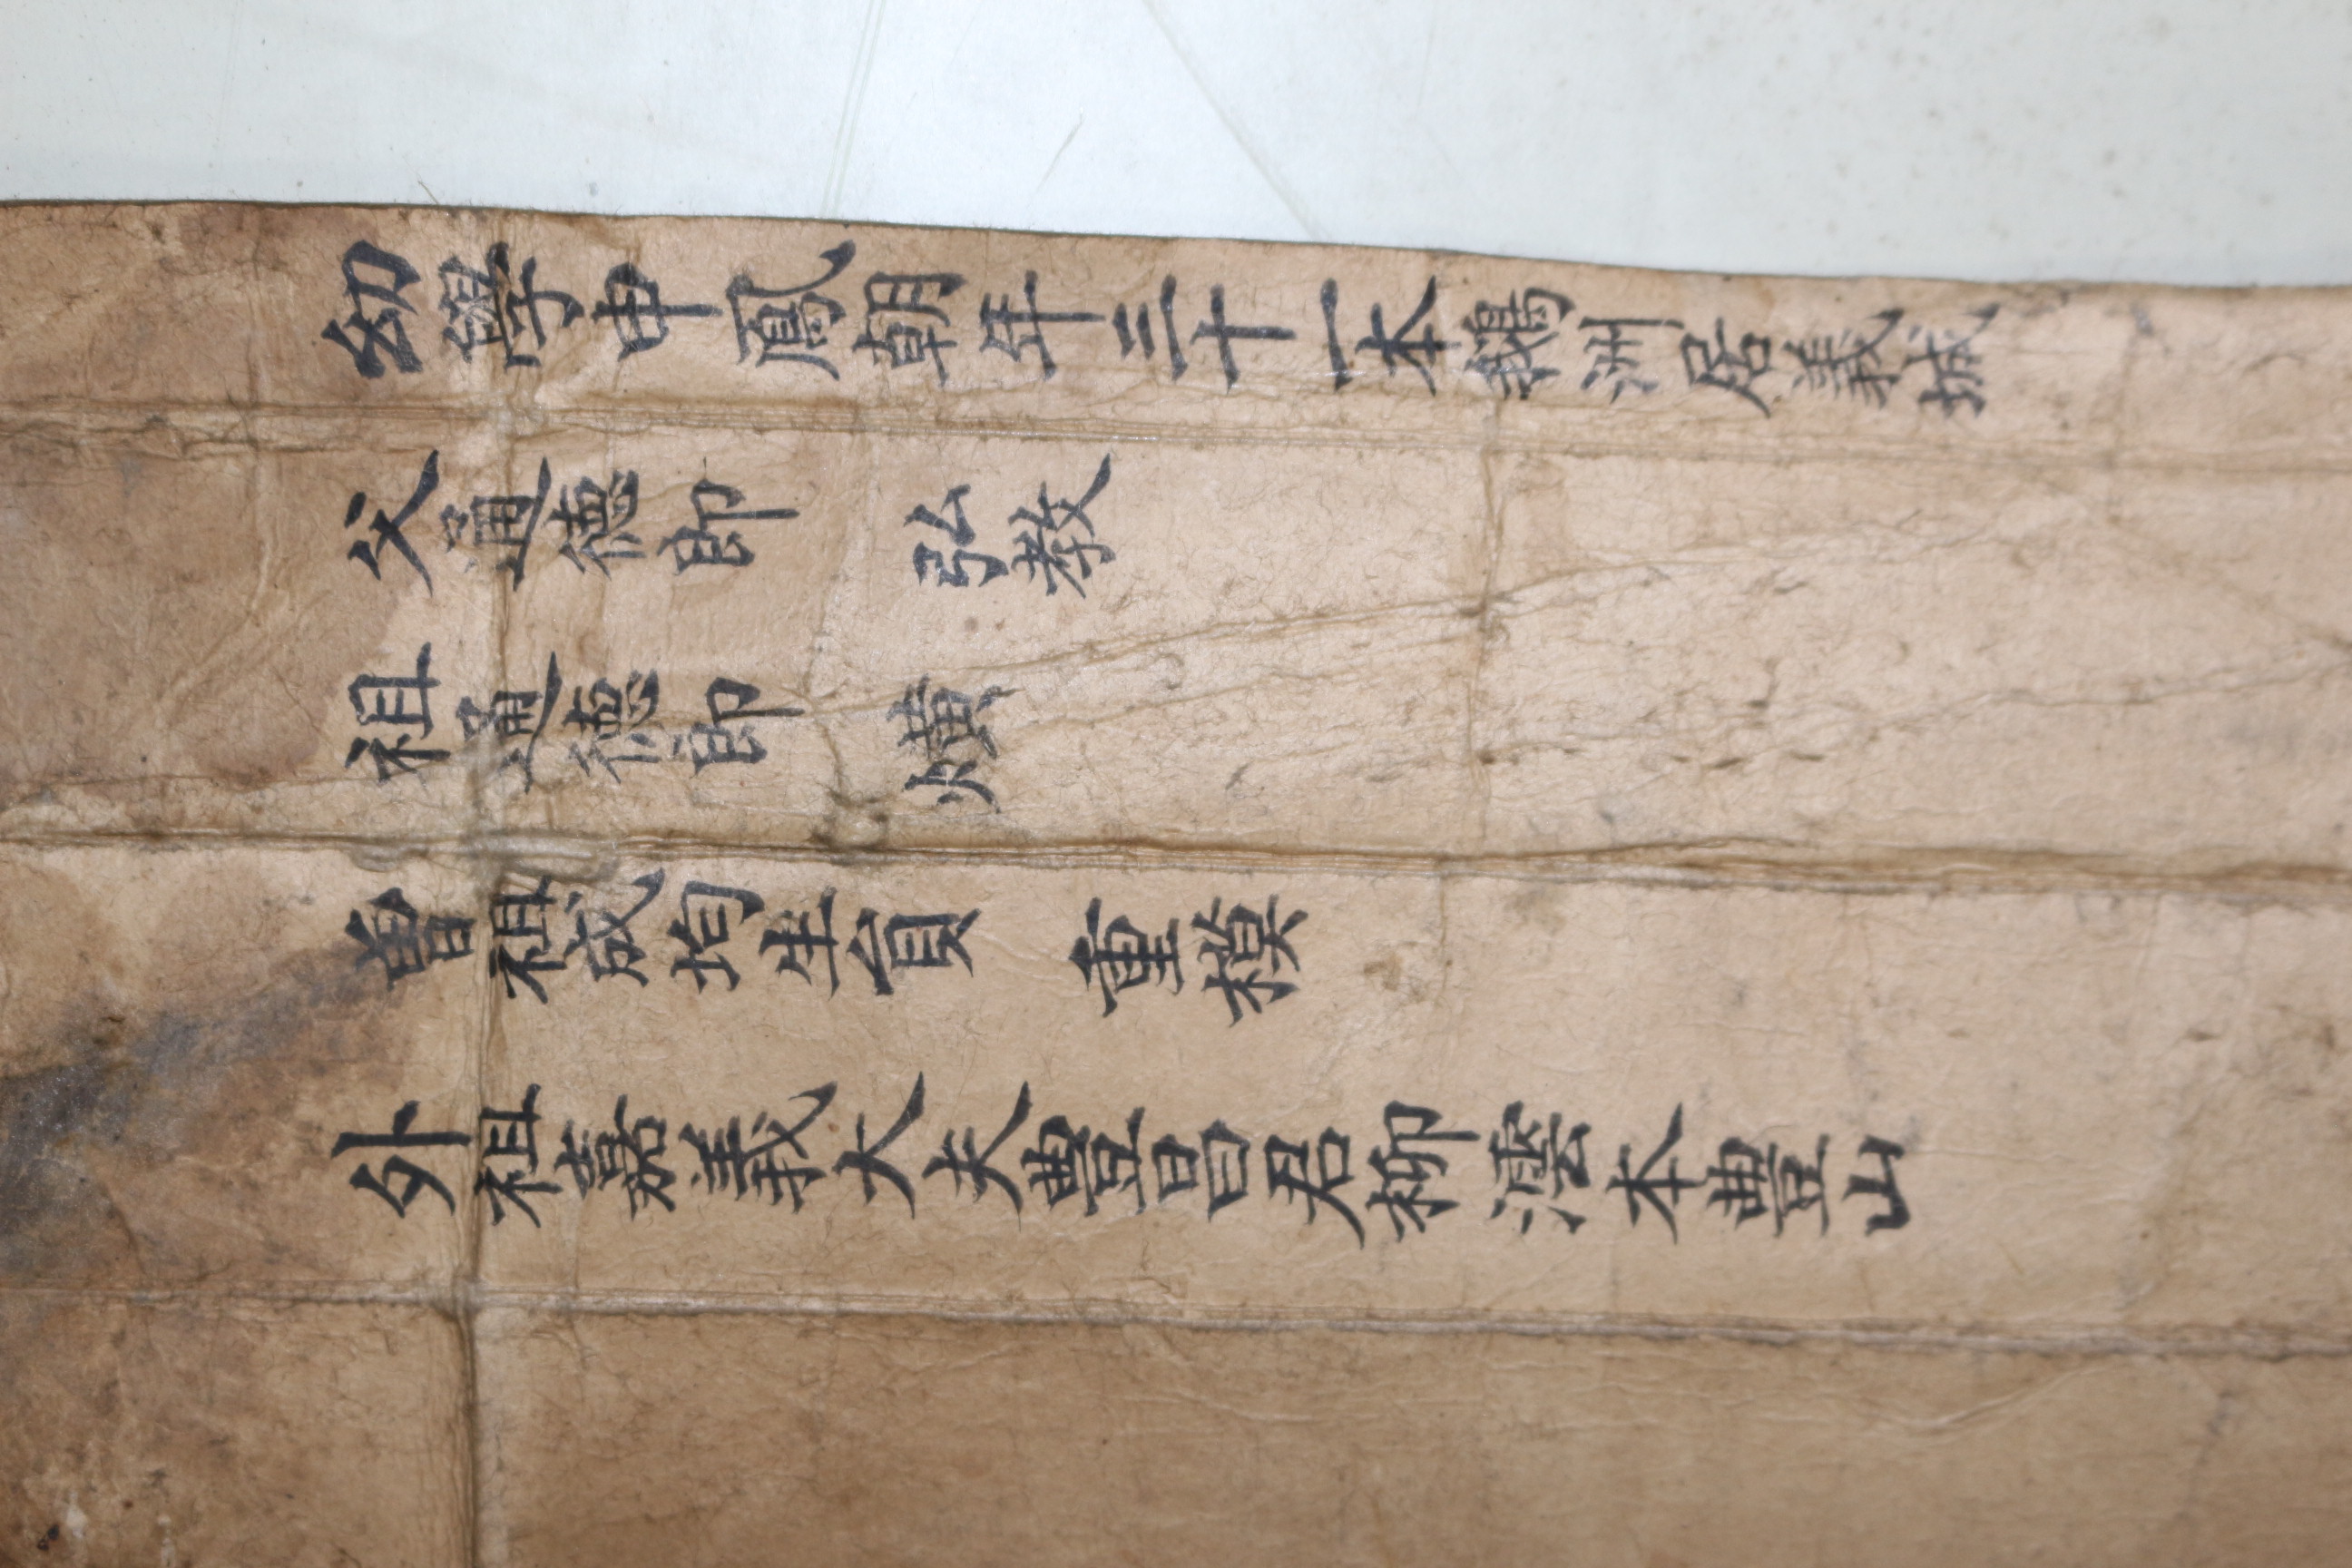 幼學申鳳朝年三十一本鵝洲居義城
父通德郞 弘敎
祖通德郞 熿
曾祖成均生員 重模
外祖嘉義大夫豊昌君柳澐本豊山